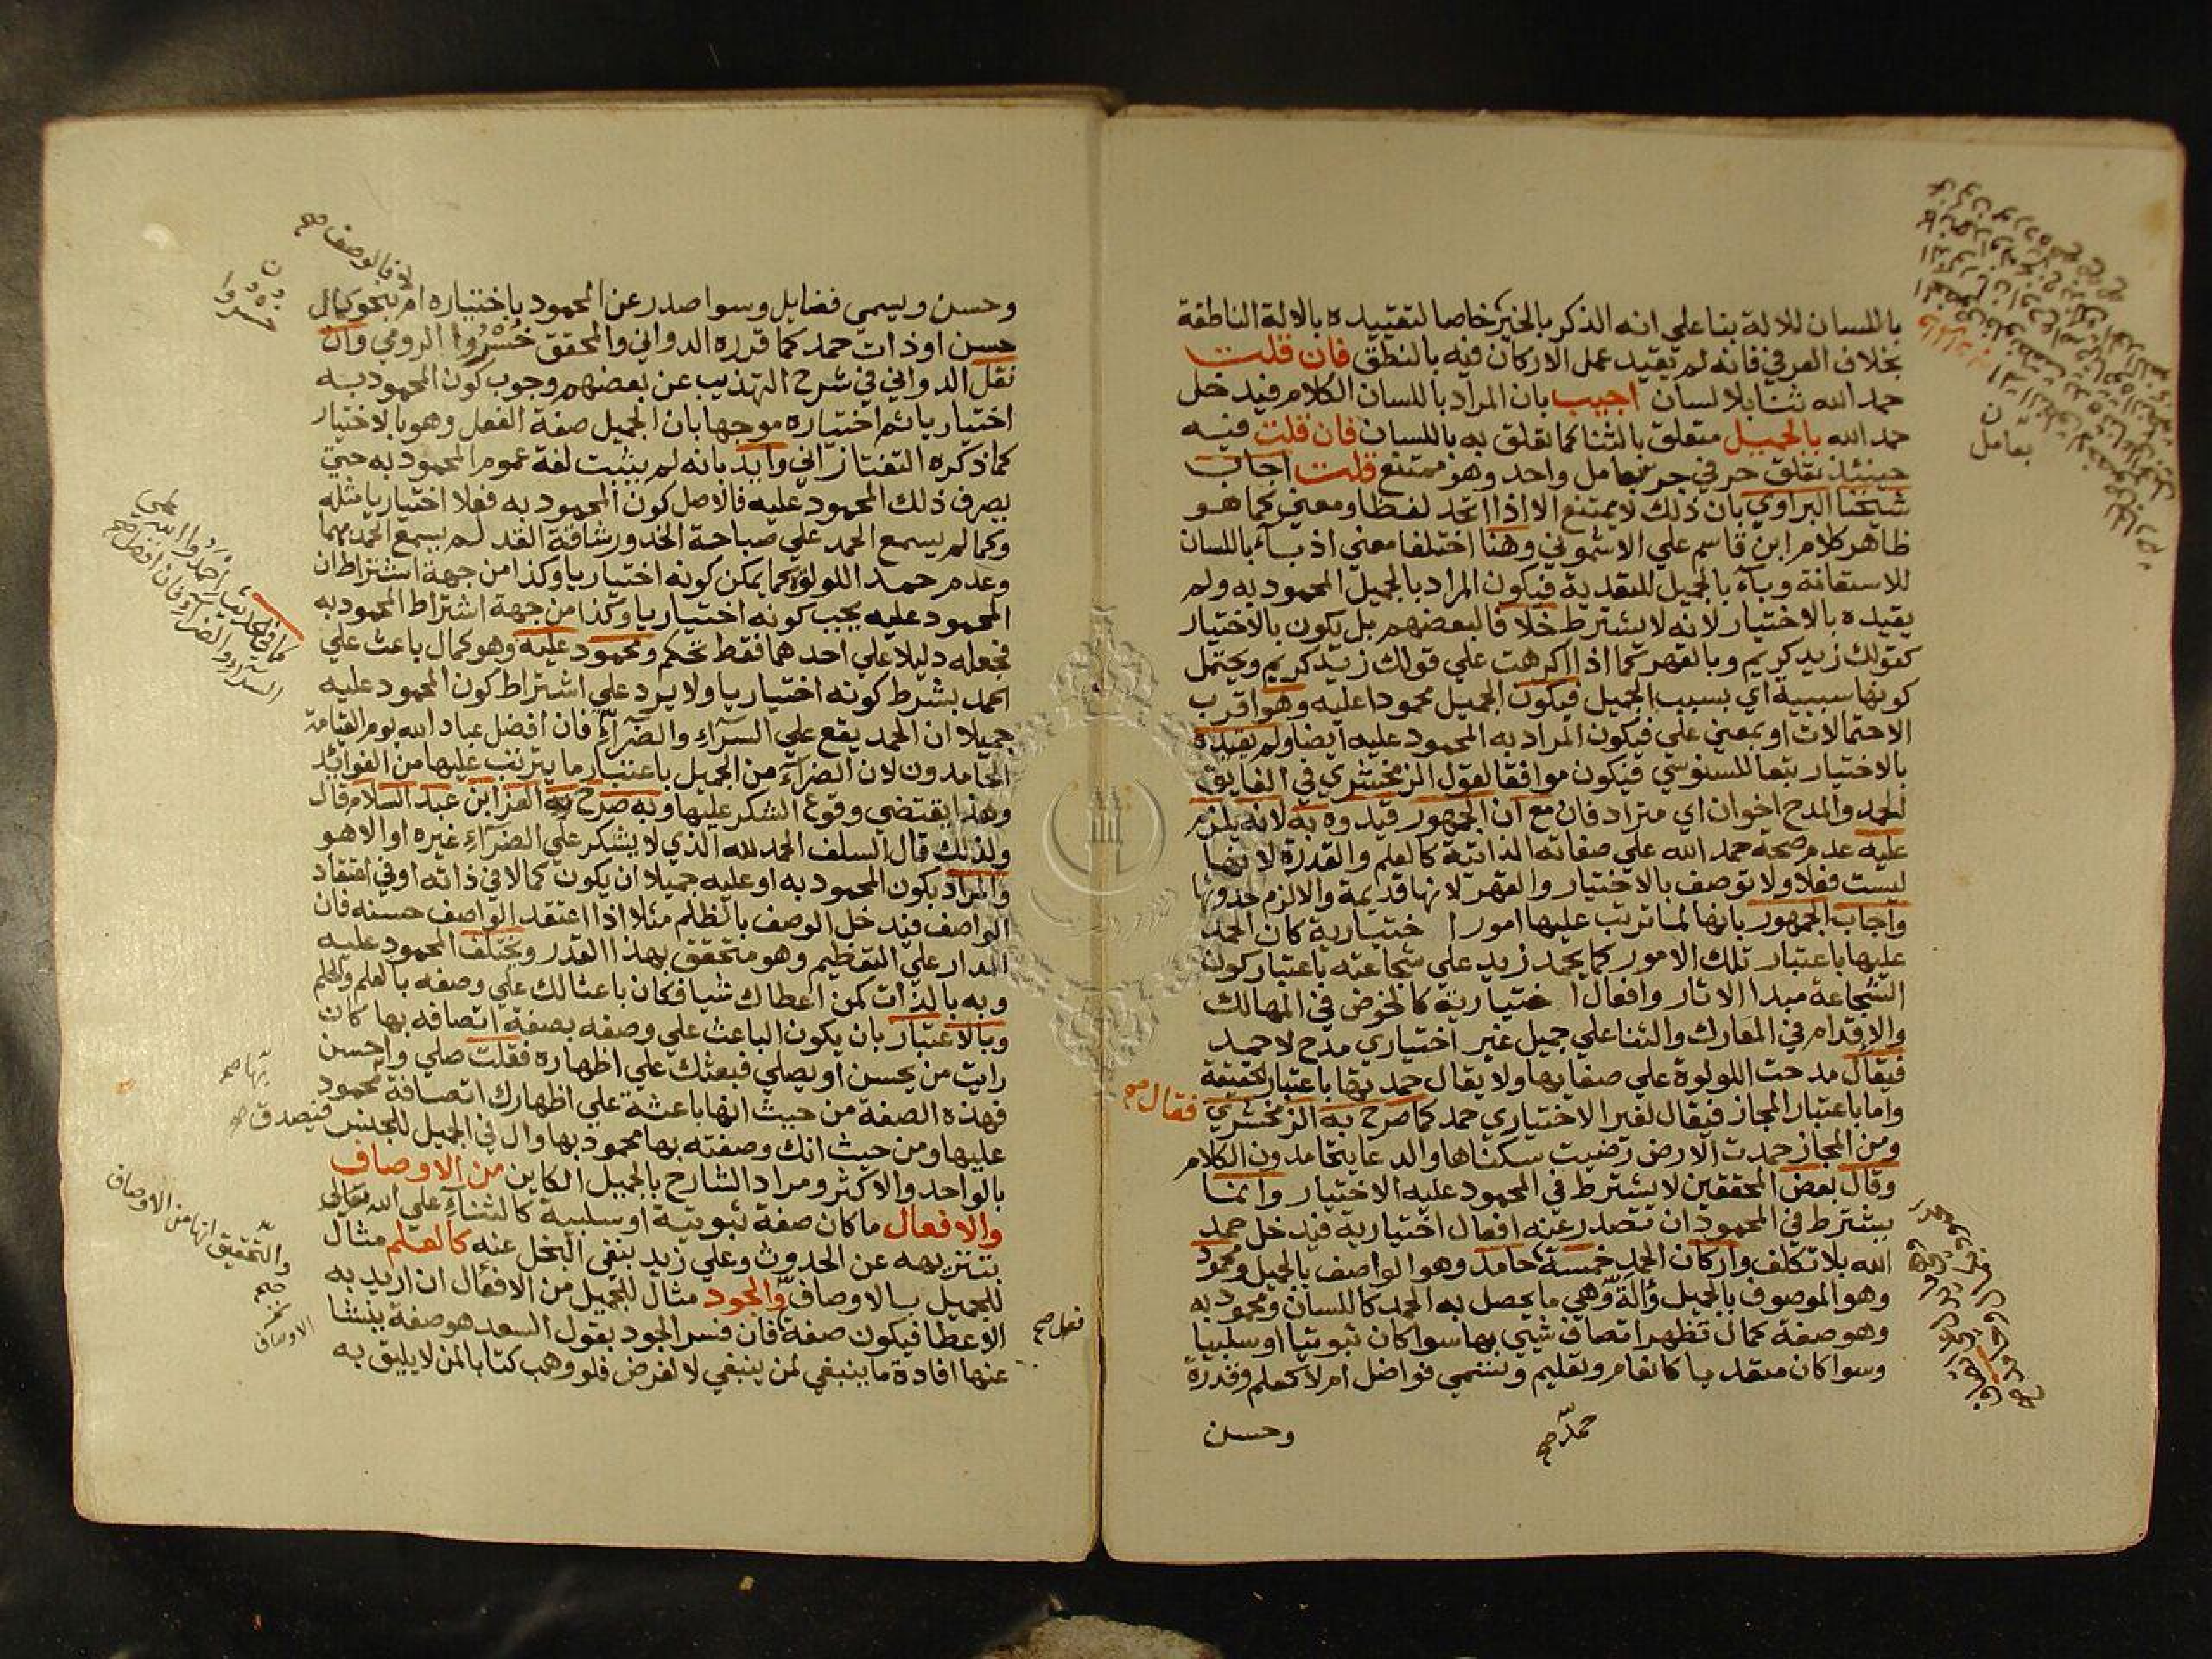 باللسان للالة بنا علي انه الذكر بالخير خاصا لتقييده بالالة الناطقة
بخلاف العرفي فانه لم يقيد عمل الاركان فيه بالنطق فان قلت
حمد الله ثنا بلا لسان اجيب بان المراد باللسان الكلام فيدخل
حمد الله بالجميل متعلق بالثنا كما تعلق به باللسان فان قلت فيه
حينئذ تعلق حرفي جر بعامل واحد وهو ممتنع قلت اجاب
شيخنا البراوي بان ذلك لا يمتنع الا اذا اتحد لفظا ومعني كما هو
ظاهر كلام ابن قاسم علي الاشموني وهنا اختلفا معني اذ باء باللسان
للاستعانة وباء بالجميل للتعدية فيكون المراد بالجميل المحمود به ولم
يقيده بالاختيار لانه لا يشترط خلافا لبعضهم بل يكون بالاختيار
كقولك زيد كريم وبالقهر كما اذا اكرهت علي قولك زيد كريم ويحتمل
كونها سببية اي بسبب الجميل فيكون الجميل محمودا عليه وهو اقرب
الاحتمالات او بمعني علي فيكون المراد به المحمود عليه ايضا ولم يقيده
بالاختيار تبعا للسنوسي فيكون موافقا لقول الزمخشري في الفايق
الحمد والمدح اخوان اي مترادفان مع ان الجمهور قيدوه به لانه يلزم
عليه عدم صحة حمد الله علي صفاته الذاتية كالعلم والقدرة لانها
ليست فعلا ولا توصف بالاختيار والقهر لانها قديمة والا لزم حدوثها
واجاب الجمهور بانها لما ترتب عليها امورا اختيارية كان الحمد
عليها باعتبار تلك الامور كما يحمد زيد علي شجاعته باعتبار كون
الشجاعة مبدا الاثار وافعال اختيارية كالخوض في المهالك
والاقدام في المعارك والثنا علي جميل غير اختياري مدح لا حمد
فيقال مدحت اللولوة علي صفايها ولا يقال حمدتها باعتبار الحقيقة
واما باعتبار المجاز فيقال لغير الاختياري حمد كما صرح به الزمخشري فقال صح
ومن المجاز حمدت الارض رضيت سكناها والدعا يتحامدون الكلام
وقال بعض المحققين لا يشترط في المحمود عليه الاختيار وانما
يشترط في المحمود ان تصدر عنه افعال اختيارية فيدخل حمد
الله بلا تكلف واركان الحمد خمسة حامد وهو الواصف بالجميل ومحمود
وهو الموصوف بالجميل وآلة وهي ما يحصل به الحمد كاللسان ومحمود به
وهو صفة كمال تظهر اتصاف شيي بها سوا كان ثبوتيا او سلبيا
وسوا كان متعديا كانعام وتعليم وتسمي فواضل ام لا كعلم وقدرة
وحسن
بعامل
وحسن ويسمي فضايل وسوا صدر عن المحمود باختياره ام بنحو كمال
حسن او ذات حمد كما قرره الدواني والمحقق خسروا الرومي وان
نقل الدواني في شرح التهذيب عن بعضهم وجوب كون المحمود به
اختياريا ثم اختياره موجها بان الجميل صفة الفعل وهو بالاختيار
كما ذكره التفتازاني وايد بانه لم يثبت لغة عموم المحمود به حتي
يصرف ذلك المحمود عليه فالاصل كون المحمود به فعلا اختياريا مثله
وكما لم يسمع الحمد علي صباحة الخد ورشاقة القد لم يسمع الحمد بهما
وعدم حمد اللولوة كما يمكن كونه اختياريا وكذا من جهة اشتراط ان
المحمود عليه يجب كونه اختياريا وكذا من جهة اشتراط المحمود به
فجعله دليلا علي احدهما فقط تحكم ومحمود عليه وهو كمال باعث علي
الحمد بشرط كونه اختياريا ولا يرد علي اشتراط كون المحمود عليه
جميلا ان الحمد يقع علي السرآء والضرآء فان افضل عباد الله يوم القيامة
الحامدون لان الضرآء من الجميل باعتبار ما يترتب عليها من الفوائد
وهذا يقتضي وقوع الشكر عليها وبه صرح العز ابن عبد السلام قال
ولذلك قال السلف الحمد لله الذي لا يشكر علي الضرآء غيره او الا هو
والمراد بكون المحمود به او عليه جميلا ان يكون كمالا في ذاته او في اعتقاد
الواصف فيدخل الوصف بالظلم مثلا اذا اعتقد الواصف حسنه فان
المدار علي التعظيم وهو متحقق بهذا القدر ويختلف المحمود عليه
وبه بالذات كمن اعطاك شيا فكان باعثا لك علي وصفه بالعلم والحلم
وبالاعتبار بان يكون الباعث علي وصفه بصفة اتصافه بها كان
رايت من يحسن او يصلي فبعثك علي اظهاره فقلت صلي واحسن
فهذه الصفة من حيث انها باعثة علي اظهارك اتصافه محمود
عليها ومن حيث انك وصفته بها محمود بها وال في الجميل للجنس فيصدق صح
بالواحد والاكثر ومراد الشارح بالجميل الكاين من الاوصاف
والافعال ما كان صفة ثبوتية او سلبية كالثنآء علي الله تعالي
بتنزيهه عن الحدوث وعلي زيد بنفي البخل عنه كالعلم مثال
للجميل بالاوصاف والجود مثال للجميل من الافعال ان اريد به
الاعطا فيكون صفة فان فسر الجود بقول السعد هو صفة ينشا
عنها افادة ما ينبغي لمن ينبغي لا لغرض فلو وهب كتابا لمن لا يليق به
خسروا
كما في حديث احمدوا الله علي
السرآء والضرآء فان افضل صح
بها صح
والتحقيق انها من الاوصاف
صح
الاوصاف
فعل صح